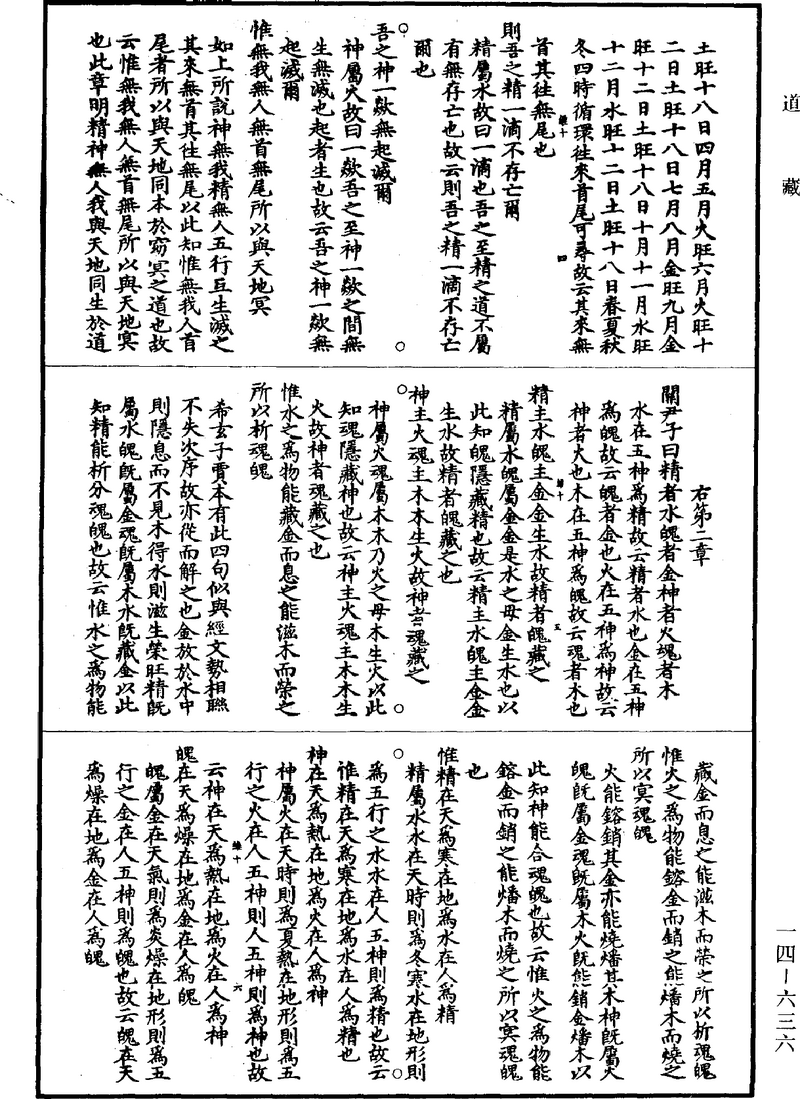 道藏
土旺十八日四月五月火旺六月火旺十
二日土旺十八日七月八月金旺九月金
旺十二日土旺十八日十月十一月水旺
十二月水旺十二日土旺十八日春夏秋
冬四時循環往來首尾可尋故云其來無
首其往無尾也
則吾之精一滴不存亡爾
精屬水故曰一滴也吾之至精之道不屬
有無存亡也故云則吾之精一滴不存亡
爾也
吾之神一欻無起滅爾
神屬火故曰一欻吾之至神一欻之間無
生無滅也起者生也故云吾之神一欻無
起滅爾
惟無我無人無首無尾所以與天地冥
如上所說神無我精無人五行互生滅之
其來無首其往無尾以此知惟無我人首
尾者所以與天地同本於窈冥之道也故
云惟無我無人無首無尾所以與天地冥
也此章明精神無人我與天地同生於道
右第二章
關尹子曰精者水魄者金神者火魂者木
水在五神爲精故云精者水也金在五神
爲魄故云魄者金也火在五神爲神故云
神者火也木在五神爲魄故云魂者木也
精主水魄主金金生水故精者魄藏之
精屬水魄屬金金是水之母金生水也以
此知魄隱藏精也故云精主水魄主金金
生水故精者魄藏之也
神主火魂主木木生火故神者魂藏之
神屬火魂屬木木乃火之母木生火以此
知魂隱藏神也故云神主火魂主木木生
火故神者魂藏之也
惟水之爲物能藏金而息之能滋木而榮之
所以析魂魄
希玄子賈本有此四句似與經文勢相聯
不失次序故亦從而解之也金放於水中
則隱息而不見木得水則滋生榮旺精旣
屬水魄旣屬金魂旣屬木水旣藏金以此
知精能析分魂魄也故云惟水之爲物能
藏金而息之能滋木而榮之所以析魂魄
惟火之爲物能鎔金而銷之能燔木而燒之
所以冥魂魄
火能鎔銷其金亦能燒燔其木神旣屬火
魄旣屬金魂旣屬木火旣能銷金燔木以
此知神能合魂魄也故云惟火之爲物能
鎔金而銷之能燔木而燒之所以冥魂魄
也
惟精在天爲寒在地爲水在人爲精
精屬水水在天時則爲冬寒水在地形則
爲五行之水水在人五神則爲精也故云
惟精在天爲寒在地爲水在人爲精也
神在天爲熱在地爲火在人爲神
神屬火在天時則爲夏熱在地形則爲五
行之火在人五神則人五神則爲神也故
云神在天爲熱在地爲火在人爲神
魄在天爲燥在地爲金在人爲魄
魄屬金在天氣則爲炎燥在地形則爲五
行之金在人五神則爲魄也故云魄在天
爲燥在地爲金在人爲魄
一四—六三六